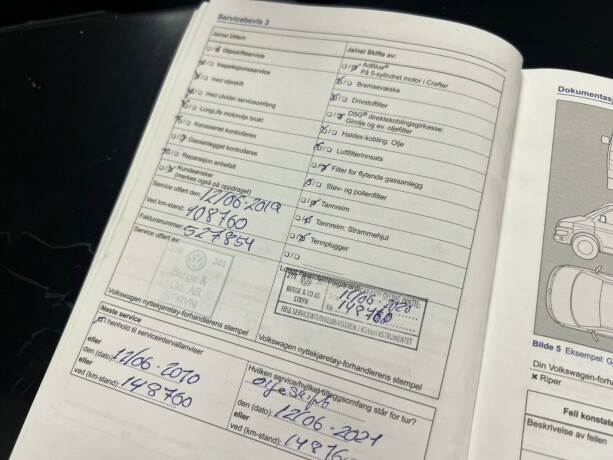 Servicebevis 3
Ja/nei Utført:
Ja/nei Skifte av:
Oljeskiftservice
Inspeksjonsservice
med oljeskift
med utvidet serviceomfang
LongLife motorolje brukt
Karosseriet kontrolleres
Gassanlegget kontrolleres
Reparasjon anbefalt
Kundeønsker
(merkes også på oppdraget)
Service utført den: 12/06-2019
Ved km-stand: 108760
Fakturanummer: 527854
Service utført av:
AdBlue®
På 5-sylindret motor i Crafter
Bremsevæske
Drivstoffilter
DSG® direktekoblingsgirkasse:
Girolje og ev. oljefilter
Haldex-kobling: Olje
Luftfilterinnsats
Filter for flytende gassanlegg
Støv- og pollenfilter
Tannreim
Tannreim: Strammehjul
Tennplugger
201
Berge &
Co. AS
STRYN
INNTIL:
12/06-2020
BERGE & CO AS
STRYN
KM
148760
FØLG SERVICEINTERVALLANVISEREN I KOMBIINSTRUMENTET
Volkswagen nyttekjøretøy-forhandlerens stempel
Volkswagen nyttekjøretøy-forhandlerens stempel
Neste service
henhold til serviceintervallanviser
eller
den (dato):
eller
ved (km-stand): 148760
Hvilken service/hvilket tilleggsomfang står for tur?
oljeskift
den (dato): 12/06-2021
eller
ved (km-stand):
Dokumentas
Bilde 5 Eksempel:
Din Volkswagen-forh
Riper
Feil konstate
Beskrivelse av feilen